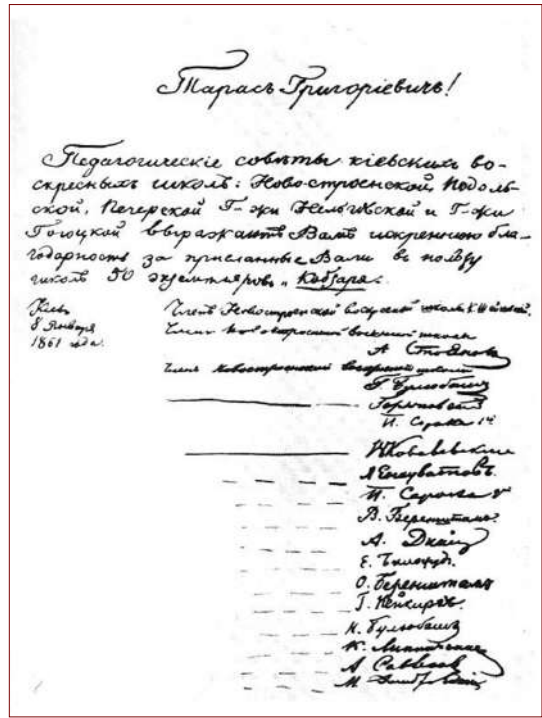 Тарасъ Григоріевичъ!
Педагогическіе совѣты кіевскихъ во-
скресныхъ школъ: Ново-строенской, Подоль-
ской, Печерской Г-жи Нельговской и Г-жи
Гогоцкой выражаютъ Вамъ искреннюю бла-
годарность за присланные Вами въ пользу
школъ 50 экземпляровъ „Кобзаря".
Кіевъ
8 Января
1861 года.
Членъ Новостроенской воскресной школы К. Шейковскій.
Членъ Новостроенской воскресной школы
А. Стояновъ
Членъ Новостроенской воскресной школы
Г. Булюбашъ
П. Сорока 1й
П. Сорока 2й
В. Беренштамъ.
А.
Е.
О. Беренштамъ
Г.
Н. Булюбашъ
К.
А. Саввесов
М.